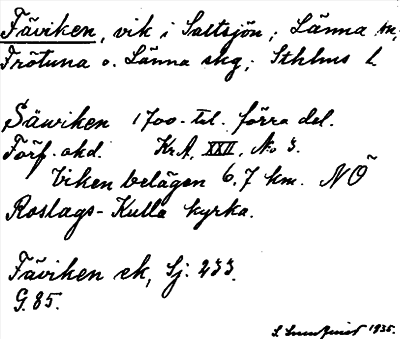 Fäviken, vik i Saltsjön; Länna sn,
Frötuna o. Länna skg; Sthlms l
Säwiken 1700-tal. förra del.
Förf. okd. Kr.A, XXII, No 3.
Viken belägen 6,7 km. NÖ
Roslags-Kulla kyrka.
Fäviken ek, Sj. 233.
G. 85.
1935.